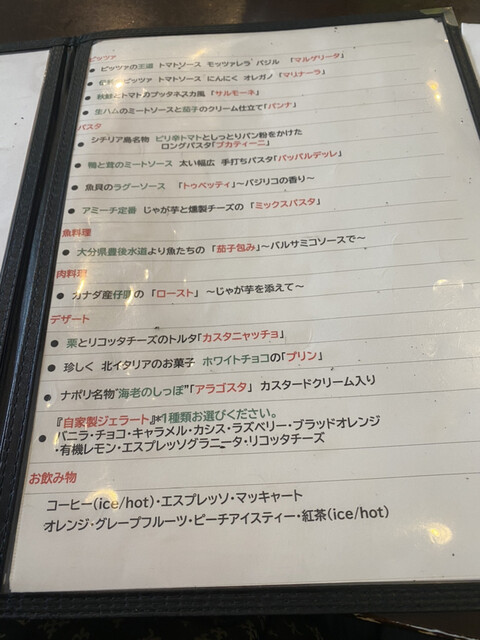 ピッツァ
● ピッツァの王道 トマトソース モッツァレラ バジル 「マルゲリータ」
● ピッツァ トマトソース にんにく オレガノ 「マリナーラ」
● 秋鮭とトマトのプッタネスカ風 「サルモーネ」
● 生ハムのミートソースと茄子のクリーム仕立て「パンナ」
パスタ
● シチリア島名物 ピリ辛トマトとしっとりパン粉をかけた
ロングパスタ「ブカティーニ」
● 鴨と茸のミートソース 太い幅広 手打ちパスタ「パッパルデッレ」
● 魚貝のラグーソース 「トゥベッティ」～バジリコの香り～
● アミーチ定番 じゃが芋と燻製チーズの 「ミックスパスタ」
魚料理
● 大分県豊後水道より魚たちの 「茄子包み」～バルサミコソースで～
肉料理
● カナダ産仔豚の 「ロースト」 ～じゃが芋を添えて～
デザート
● 栗とリコッタチーズのトルタ「カスタニャッチョ」
● 珍しく 北イタリアのお菓子 ホワイトチョコの「プリン」
● ナポリ名物"海老のしっぽ"「アラゴスタ」 カスタードクリーム入り
● 『自家製ジェラート』*1種類お選びください。
バニラ・チョコ・キャラメル・カシス・ラズベリー・ブラッドオレンジ
・有機レモン・エスプレッソグラニータ・リコッタチーズ
お飲み物
コーヒー(ice/hot)・エスプレッソ・マッキャート
オレンジ・グレープフルーツ・ピーチアイスティー・紅茶(ice/hot)